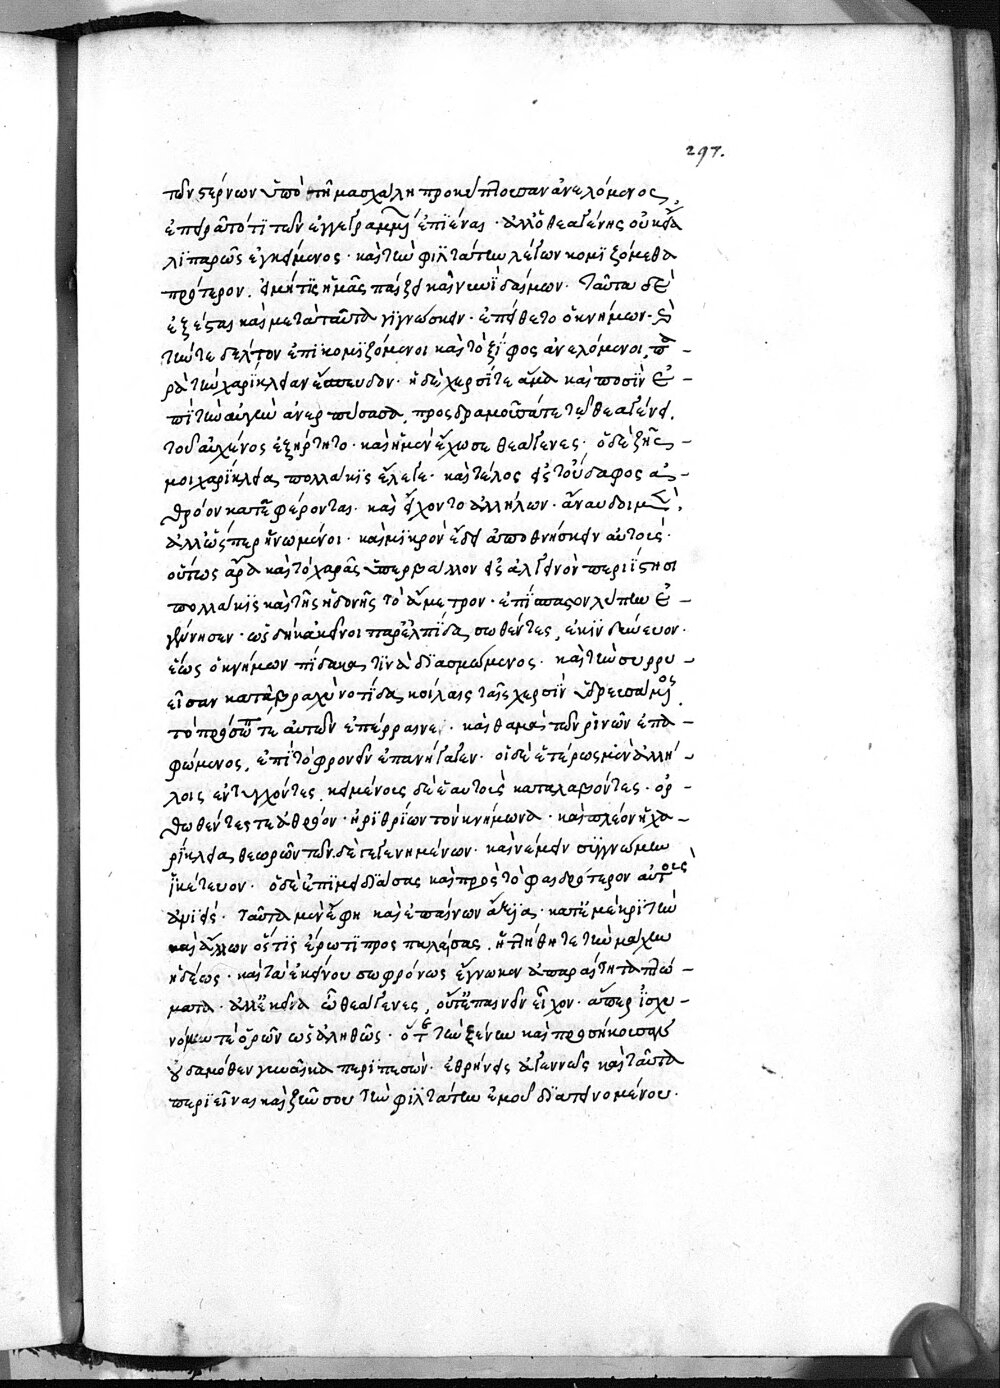 297.
τῶν στέρνων ὑπὸ τῆ μασχάλη προκύπτουσαν ἀνελόμενος,
ἐπειρᾶτό τι τῶν ἐγγεγραμμένων ἐπϊέναι · ἀλλ' ὁ θεαγένης οὐκ εἴα
λϊπαρῶς ἐγκείμενος · καὶ τὴν φιλτάτην λέγων κομϊζόμεθα
πρότερον. εἰ μήτϊς ἡμᾶς παίζει καὶ νῦν δαίμων · ταῦτα δὲ
ἐξέσται καὶ μετὰ ταῦτα γϊγνώσκειν · ἐπείθετο ὁ κνήμων · καὶ
τήν τε δέλτον ἐπϊκομϊζόμενοι καὶ τὸ ξΐφος ἀνελόμενοι, πα -
ρὰ τὴν χαρίκλειαν ἔσπευδον · ἡ δὲ χερσί τε ἅμα καὶ ποσῒν ἐ -
πὶ τὴν αὐγὴν ἀνερπύσασα, προσδραμοῦσά τε τῶ θεαγένει,
τοῦ αὐχένος ἐξήρτητο · καὶ ἡ μὲν ἔχω σε θεάγενες · ὁ δὲ ζῆς -
μοι χαρίκλεια πολλάκις ἔλεγε · καὶ τέλος εἰς τοὔδαφος ἀ -
θρόον καταφέρονται · καὶ εἴχοντο ἀλλήλων · ἄναυδοι μὲν,
ἀλλ' ὥσπερ ἡνωμένοι · καὶ μϊκρὸν ἔδει ἀποθνήσκειν αὐτούς ·
οὕτως ἄρα καὶ τὸ χαρᾶς ὑπερβάλλον εἰς ἀλγεινὸν περιΐστησι
πολλάκϊς καὶ τῆς ἡδονῆς τὸ ἄμετρον · ἐπΐσπαστον λύπην ἐ -
γέννησεν · ὡς δὴ κἀκεῖνοι παρ' ἐλπΐδα σωθέντες, ἐκινδύνευον ·
ἕως ὁ κνήμων πΐδακα τϊνὰ δϊασμώμενος · καὶ τὴν συρρυ -
εῖσαν κατὰ βραχὺ νοτΐδα, κοίλαις ταῖς χερσῒν ὑδρευσάμενος.
τὸ πρόσωπόν τε αὐτῶν ἐπέρραινεν · καὶ θαμὰ τῶν ῥϊνῶν ἐπα -
φώμενος, ἐπὶ τὸ φρονεῖν ἐπανήγαγεν · οἱ δὲ ἑτέρως μὲν ἀλλή -
λοις ἐντυχόντες, κειμένους δὲ ἑαυτοὺς καταλαβόντες · ὀρ -
θωθέντες τε ἀθρόον · ἠρϋθρίων τὸν κνήμωνα · καὶ πλέον ἡ χα -
ρίκλεια, θεωρὸν τῶν δὲ γεγενημένων · καὶ νέμειν συγγνώμην
ἱκέτευον · ὁ δὲ ἐπϊμειδϊάσας καὶ πρὸς τὸ φαιδρότερον αὐτοὺς
ἀνιείς · ταῦτα μὲν ἔφη καὶ ἐπαίνων ἄξϊα · κατ' ἐμὲ κρϊτὴν
καὶ ἄλλον ὅστϊς ἔρωτι προσπαλαίσας, ἡττήθη τε τὴν μάχην
ἡδέως · καὶ τὰ ἐκείνου σωφρόνως ἔγνωκεν ἀπαραίτητα πτώ -
ματα · ἀλλ' ἐκεῖνα ὦ θεάγενες, οὔτ' ἐπαινεῖν εἶχον · ἅπερ ἠσχυ -
νόμην τε ὁρῶν ὡς ἀληθῶς · ὅτε τὴν ξένην καὶ προσήκουσαν
οὐδαμόθεν γυναῖκα περιπεσὼν · ἐθρήνεις ἀγεννῶς καὶ ταῦτα
περϊεῖναι καὶ ζῆν σου τὴν φϊλτάτην ἐμοῦ δϊατεινομένου ·